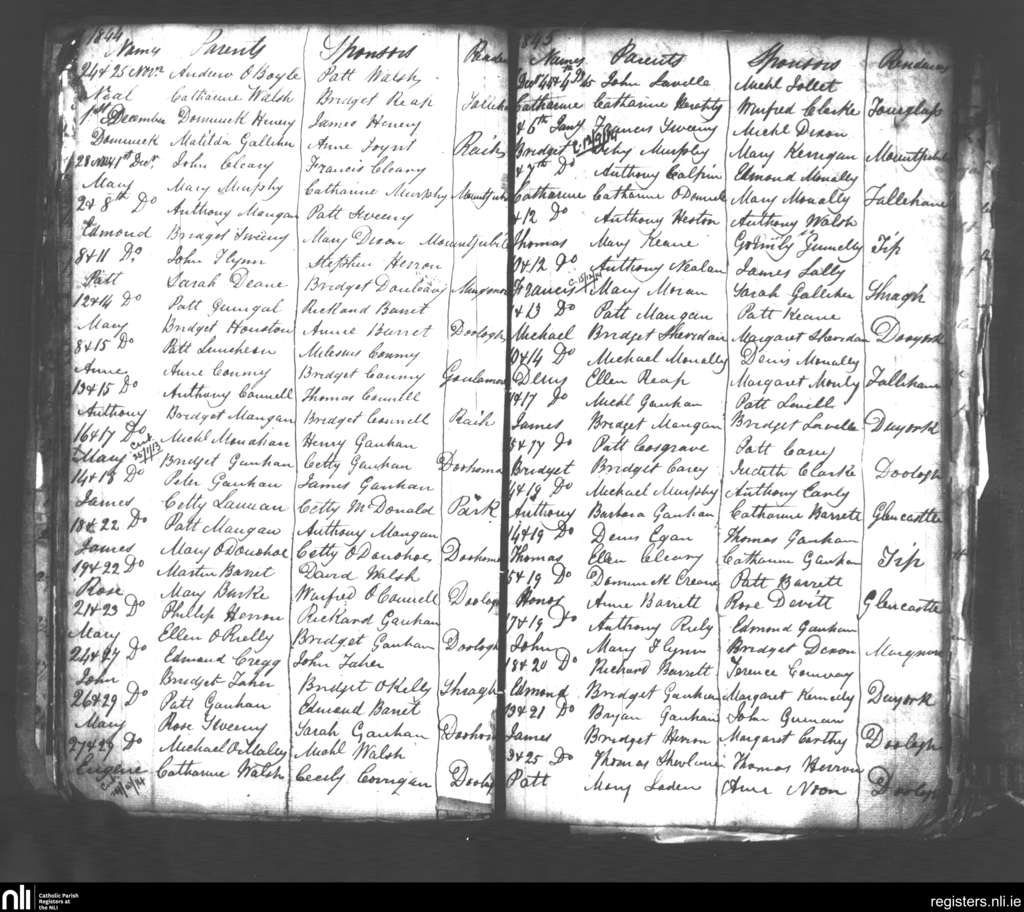 1844
Names Parents Sponsors Residen
24 & 25 Novr Andrew O Boyle Patt Walsh
Neal Catharine Walsh Bridget Reap
1st Decembr Domnick Henery James Henery
Domnick Matilda Gallihen Anne Joynt Raith
28 Nov & 1st Decr John Cleary Francis Cleary
Mary Mary Murphy Catharine Murphy Mountjubi
2 & 8th Do Anthony Mangan Patt Sweeny
Edmond Bridget Sweeny Mary Dixon Mountjubile
8 & 11 Do John Flynn Stephen Herron
Patt Sarah Deane Bridget
12 & 14 Do Patt Rickard Barret
Mary Bridget Houston Anne Barret Doologh
8 & 15 Do Patt Luncheon Conmy
Anne Anne Conmy Bridget Conmy
13 & 15 Do Anthony Connell Thomas Connell
Anthony Bridget Mangan Bridget Connell Raith
16 & 17 Do Michl Monahan Henry Gaughan
Mary Cert 25/1/13 Bridget Gaughan Cetty Gaughan Doohoma
14 & 18 Do Peter Gaughan James Gaughan
James Cetty Cetty McDonald Park
18 & 22 Do Patt Mangan Anthony Mangan
James Mary O Donohoe Cetty O Donohoe Doohoma
19 & 22 Do Martin Barret David Walsh
Rose Mary Burke Winfred O Connell Doologh
21 & 23 Do Philip Herron Rickard Gaughan
Mary Ellen O Rielly Bridget Gaughan Doologh
24 & 27 Do Edmund Cregg John Taher
John Bridget Taher Bridget O Kelly Shragh
26 & 29 Do Patt Gaughan Edmund Barret
Mary Rose Sweeny Sarah Gaughan Doohom
27 & 29 Do Michael O Maley Michl Walsh
Eugene Catharine Walsh Cecily Corrigan Doolog
1845
Names Parents Sponsors Residences
John Lavelle Michl Jollet
Catharine Catharine Winfred Clarke
& 6th Jany Francis Sweeny Michl Dixon
Bridget Murphy Mary Kerrigan Mountjubile
& 7th Do Anthony Calpin Edmond Monally
Catharine Catharine O Donnell Mary Monally Tallehane
& 12 Do Anthony Heston Anthony Walsh
Thomas Mary Keane Ginnelly Tip
& 12 Do Anthony Nealan James Lally
Francis Mary Moran Sarah Gallihen Shragh
& 13 Do Patt Mangan Patt Keane
Michael Bridget Sheridan Margaret Sheridan Dooyork
& 14 Do Michael Monally Denis Monally
Denis Ellen Reap Margaret Tallehane
& 17 Do Michl Gaughan Patt
James Bridget Mangan Bridget Lavelle Dooyork
& 17 Do Patt Cosgrave Patt Carey
Bridget Bridget Carey Judith Clarke Doologh
& 19 Do Michael Murphy Anthony
Anthony Barbara Gaughan Catharine Barrett Glencastle
14 & 19 Do Denis Egan Thomas Gaughan
Thomas Ellen Cleary Catharine Gaughan Tip
& 19 Do Domnick Creane Patt Barrett
Honor Anne Barrett Rose Devitt Glencastle
17 & 19 Do Anthony Riely Edmond Gaughan
John Mary Flynn Bridget Dixon
18 & 20 Do Richard Barrett Terence Conway
Edmond Bridget Gaughan Margaret Kennedy Dooyork
& 21 Do Bryan Gaughan John
James Bridget Herron Margaret Carthy Doologh
& 25 Do Thomas Thomas Herron
Patt Mary Loden Anne Noon Doologh
nli Catholic Parish
Registers at
the NLI
registers.nli.ie